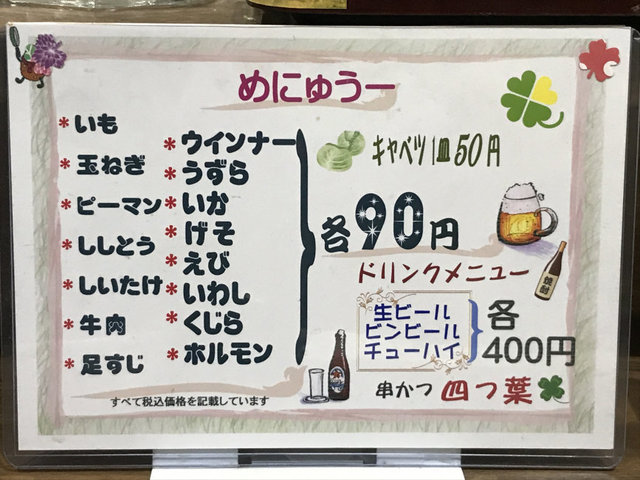 めにゅうー
*いも
*玉ねぎ
*ピーマン
*ししとう
*しいたけ
*牛肉
*足すじ
*ウインナー
*うずら
*いか
*げそ
*えび
*いわし
*くじら
*ホルモン
キャベツ1皿50円
各90円
ドリンクメニュー
生ビール
ビンビール
チューハイ
各
400円
串かつ 四つ葉
すべて税込価格を記載しています